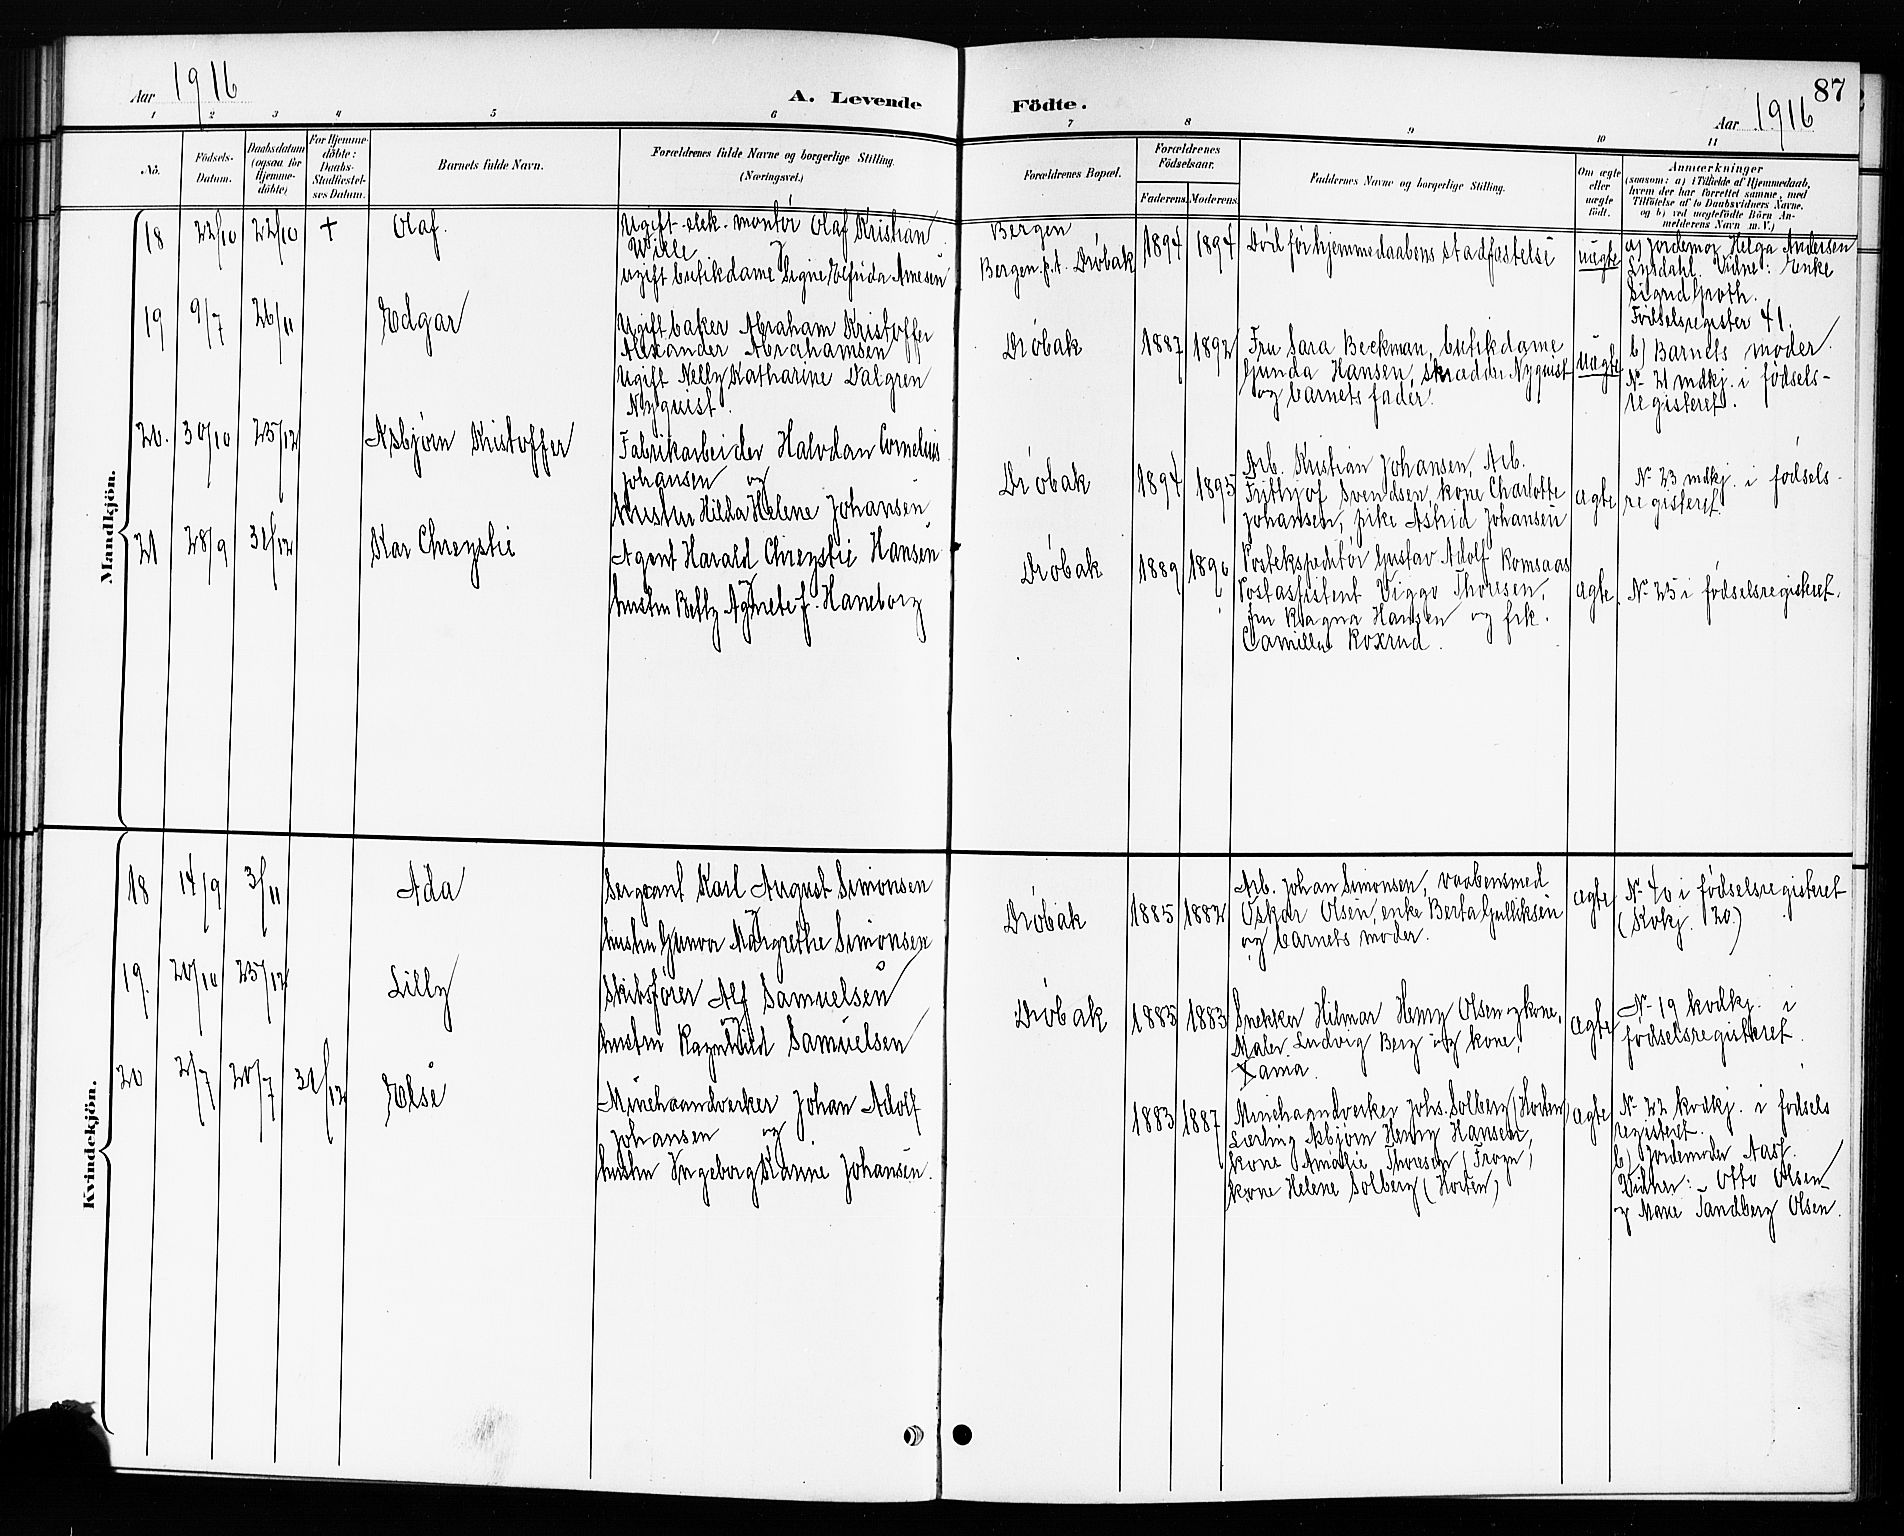 Aar 1916
A. Levende
Födte.
87
Aar 1916
1 2 3 4 5 6 7 8 9 10 11
No.
Födsels-
Datum.
Daabsdatum
(ogsaa for
Hjemme-
döbte)
For Hjemme-
döbte:
Daabs-
Stadfæstel-
ses Datum.
Barnets fulde Navn.
Forældrenes fulde Navne og borgerlige Stilling.
(Næringsvei.)
Forældrenes Bopæl.
Forældrenes
Födselsaar.
Faderens. Moderens.
Faddernes Navne og borgerlige Stilling.
Om ægte
eller
uægte
födt.
Anmærkninger
(saasom: a) i Tilfælde af Hjemmedaab,
hvem der har forrettet samme, med
Tilföielse af to Daabsvidners Navne,
og b) ved uægtefödte Börn An-
melderens Navn m. V.)
Mandkjön.
18 22/10 22/10 † Olaf.
Ugift elek. montør Olaf Kristian
Wille
ugift butikdame Signe Elfrida Arnesen
Bergen
Bergen p.t. Drøbak
1894 1894
Død før hjemmedaabens stadfæstelse
uægte
a) Jordemor Helga Andersen
Lysdahl. Vidne: Enke
Sigrid Groth.
Fødselsregister 41.
19 9/7 26/11 Edgar
Ugift baker Abraham Kristoffer
Alexander Abrahamsen
Ugift Nelly Katharine Dalgren
Nyquist.
Drøbak
1887 1892
Fru Sara Beckman, butikdame
Gunda Hansen, skrædder Nyquist
og barnets fader.
uægte
b) Barnets moder.
No 21 mdkj. i fødsels-
registeret.
20. 30/10 25/12 Asbjørn Kristoffer
Fabrikarbeider Halvdan Cornelius
Johansen og
Hustru Hilda Helene Johansen
Drøbak
1894 1895
Arb. Kristian Johansen, Arb.
Frithjof Svendsen, kone Charlotte
Johansen, pike Astrid Johansen
ægte
No 23 mdkj. i fødsels-
registeret.
21 28/9 31/12 Kar Chrystie
Agent Harald Chrystie Hansen
hustru Betty Agnete f. Haneborg
Drøbak
1889 1890
Postekspeditør Gustav Adolf Romsaas
Postassistent Viggo Thoresen,
fru Ragna Hansen og frk.
Camilla Koxrud.
ægte.
No 25 i fødselsregisteret.
Kvindekjön.
18 14/9 3/11 Ada
Sergeant Karl August Simonsen
og
hustru Gunvor Margrethe Simonsen
Drøbak
1885 1882
Arb. Johan Simonsen, vaabensmed
Oskar Olsen, enke Berta Gulliksen
og barnets moder.
ægte
No 40 i fødselsregisteret
(Kvkj. 20.)
19. 20/10 25/12 Lilly
Skibsfører Alf Samuelsen
og
hustru Ragnhild Samuelsen
Drøbak
1885 1883
Snekker Hilmar Henry Olsen og kone,
Maler Ludvig Berg og kone,
ægte
No 19 kvdkj. i
fødselsregisteret.
20 2/7 20/7 31/12 Else
Minehaandverker Johan Adolf
Johansen og
hustru Ingeborg Karine Johansen.
1883 1887
Minehaandverker Johs. Solberg (Horten)
Lærling Asbjørn Henry Hansen,
kone Amalie Thoresen (Frogn),
kone Helene Solberg (Horten)
ægte
No 22 kvdkj. i fødsels
registeret.
b) Jordemoder Aas.
Vidner: Otto Olsen
og Marie Sandberg Olsen.